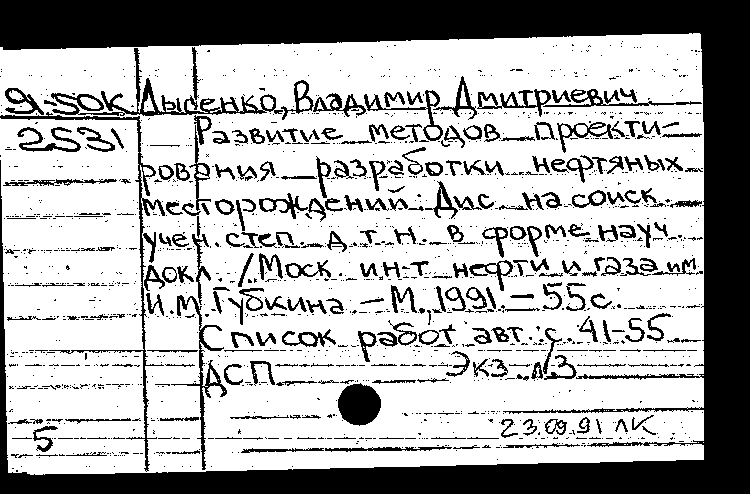 91-50К Лысенко, Владимир Дмитриевич.
2531 Развитие методов проекти-
рования разработки нефтяных
месторождений: Дис. на соиск.
учен. степ. д.т.н. в форме науч.
докл. / Моск. ин-т нефти и газа им.
И.М. Губкина. - М., 1991. - 55с.
Список работ авт.: с. 41-55
ДСП Экз. №3
23.09.91 ЛК
5